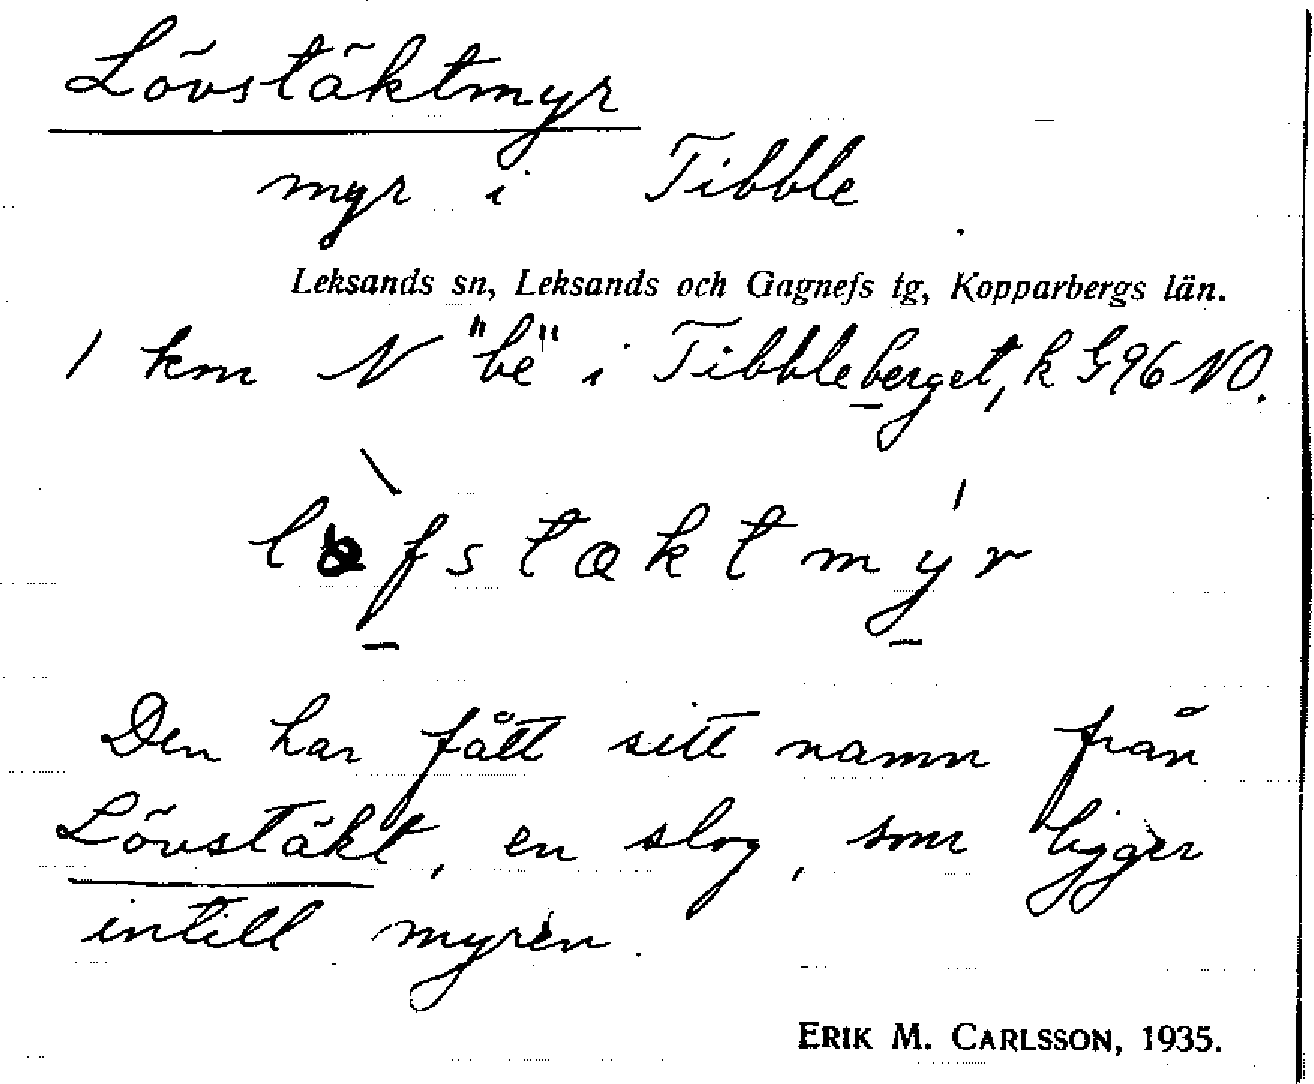 Lövstäktmyr
myr i Tibble
Leksands sn, Leksands och Gagnefs tg, Kopparbergs län.
1 km N "be" i Tibbleberget, k G96 NO.
löfstæktmyr
Den har fått sitt namn från
Lövstäkt, en slog, som ligger
intill myren.
ERIK M. CARLSSON, 1935.